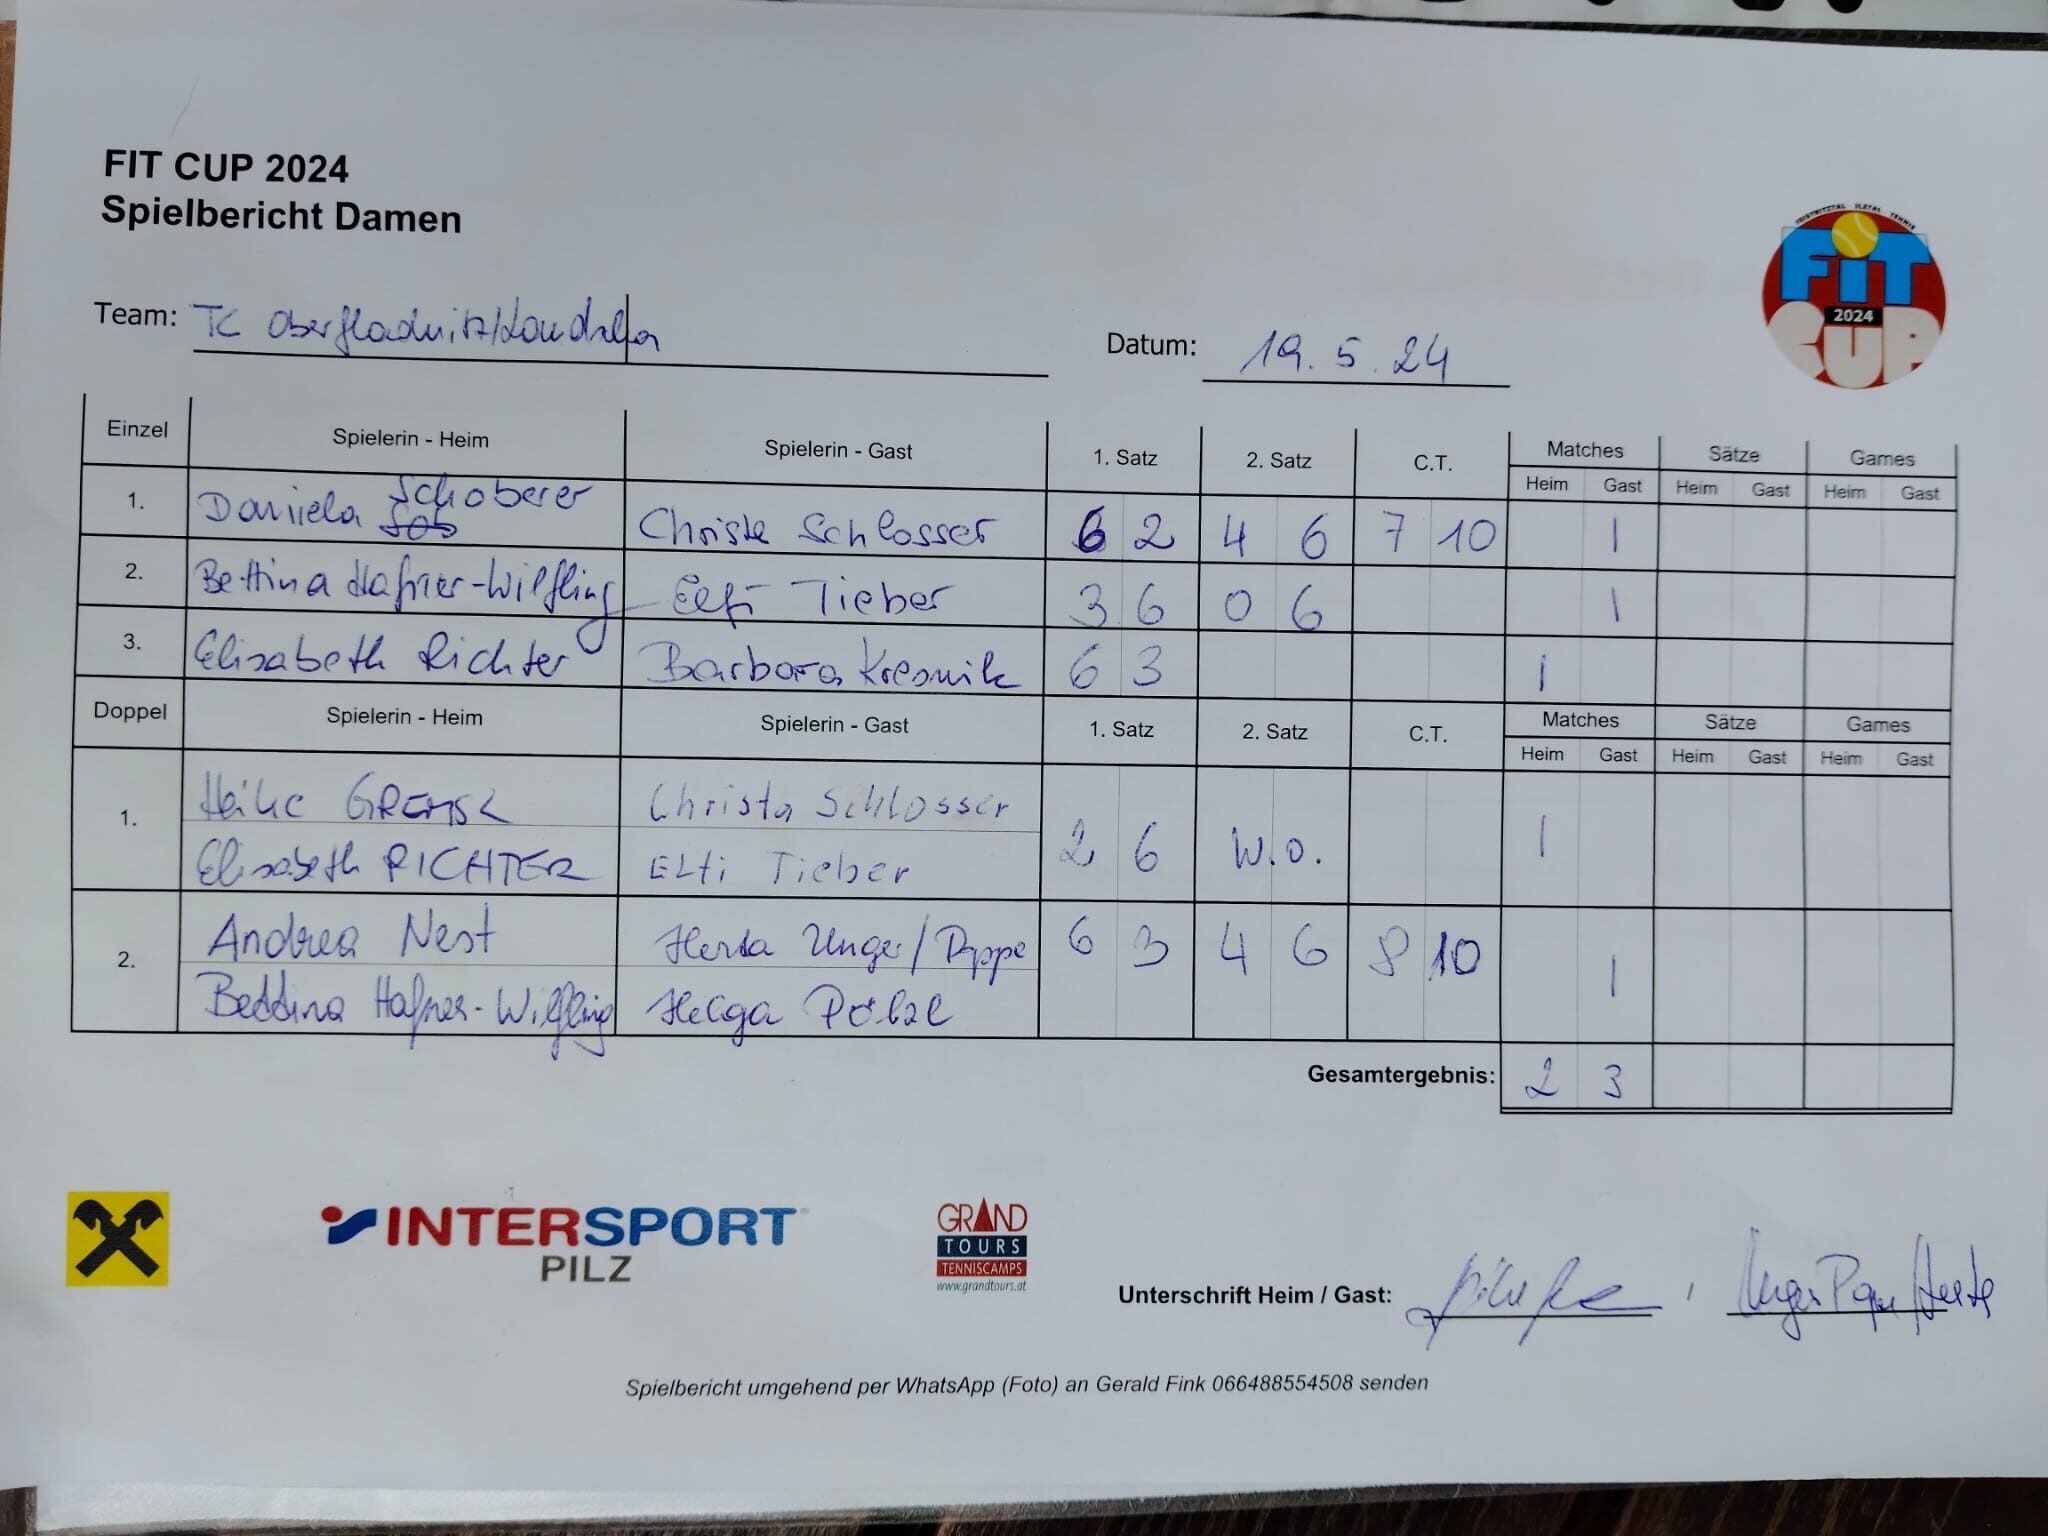 FIT CUP 2024
Spielbericht Damen
FEISTRITZTAL ILZTAL TENNIS
FiT
2024
CUP
Team: TC Oberfladnitz/
Datum: 19. 5. 24
Einzel Spielerin - Heim Spielerin - Gast 1. Satz 2. Satz C.T. Matches Sätze Games
Heim Gast Heim Gast Heim Gast
1. Daniela Schoberer Christa Schlosser 6 2 4 6 7 10 1
2. Bettina Hafner-Wilfling Elfi Tieber 3 6 0 6 1
3. Elisabeth Richter Barbara Kresnik 6 3 1
Doppel Spielerin - Heim Spielerin - Gast 1. Satz 2. Satz C.T. Matches Sätze Games
Heim Gast Heim Gast Heim Gast
1. Heike GREMSL Christa Schlosser
Elisabeth RICHTER Elfi Tieber 2 6 W.O. 1
2. Andrea Nest Herta Unger/Poppe 6 3 4 6 8 10 1
Bettina Hafner-Wilfling Helga Pölzl
Gesamtergebnis: 2 3
INTERSPORT
PILZ
GRAND
TOURS
TENNISCAMPS
www.grandtours.at
Unterschrift Heim / Gast:
Spielbericht umgehend per WhatsApp (Foto) an Gerald Fink 066488554508 senden